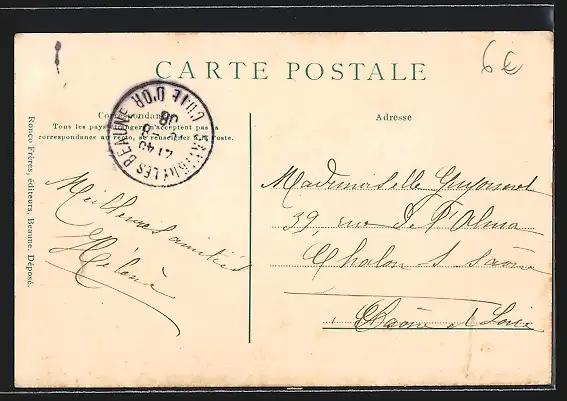 6€
CARTE POSTALE
Correspondance
Tous les pays étrangers n'acceptent pas la
correspondance au recto, se renseigner à la Poste.
Adresse
SAVIGNY-LES-BEAUNE
CÔTE D'OR
08
Meilleures amitiés
Hélène
Mademoiselle Guyonnet
39, rue de l'Alma
Chalon s Saône
Saône et Loire
Ronco Frères, éditeurs, Beaune. Déposé.